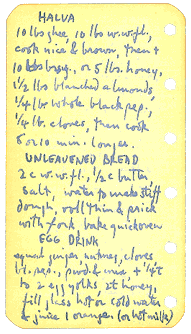 HALVA
10 lbs ghee, 10 lbs w.w.fl.,
cook nice & brown, then +
10 lbs , or 5 lbs. honey,
1½ lbs blanched almonds
¼ lb whole black pep.,
¼ lb. cloves, then cook
8 or 10 min. longer.
UNLEAVENED BREAD
2 c w.w.fl., ½ c butter
salt, water to make stiff
dough, roll thin & prick
with fork bake quick oven
EGG DRINK
equal ginger, nutmeg, cloves
pep., pwd & mix, + ¼ t
to 2 egg yolks, 2t honey,
fill glass hot or cold water
& juice 1 orange (or hot milk)